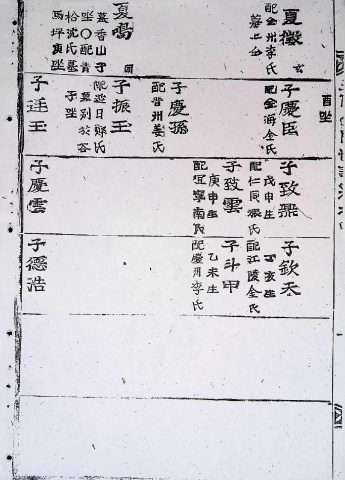 夏徵
配全州李氏
墓上仝
玄
夏鬲
墓香山子
坐〇配青
松沈氏墓
馬坪庚坐
酉坐
子慶臣
配金海仝氏
子慶孫
配晋州姜氏
子振玉
配延日鄭氏
墓別放谷
子坐
子廷玉
子致羆
戊申生
配仁同張氏
子致雲
庚申生
配宜寧南氏
子慶雲
子欽天
丁亥生
配江陵仝氏
子斗甲
乙未生
配慶州李氏
子德浩